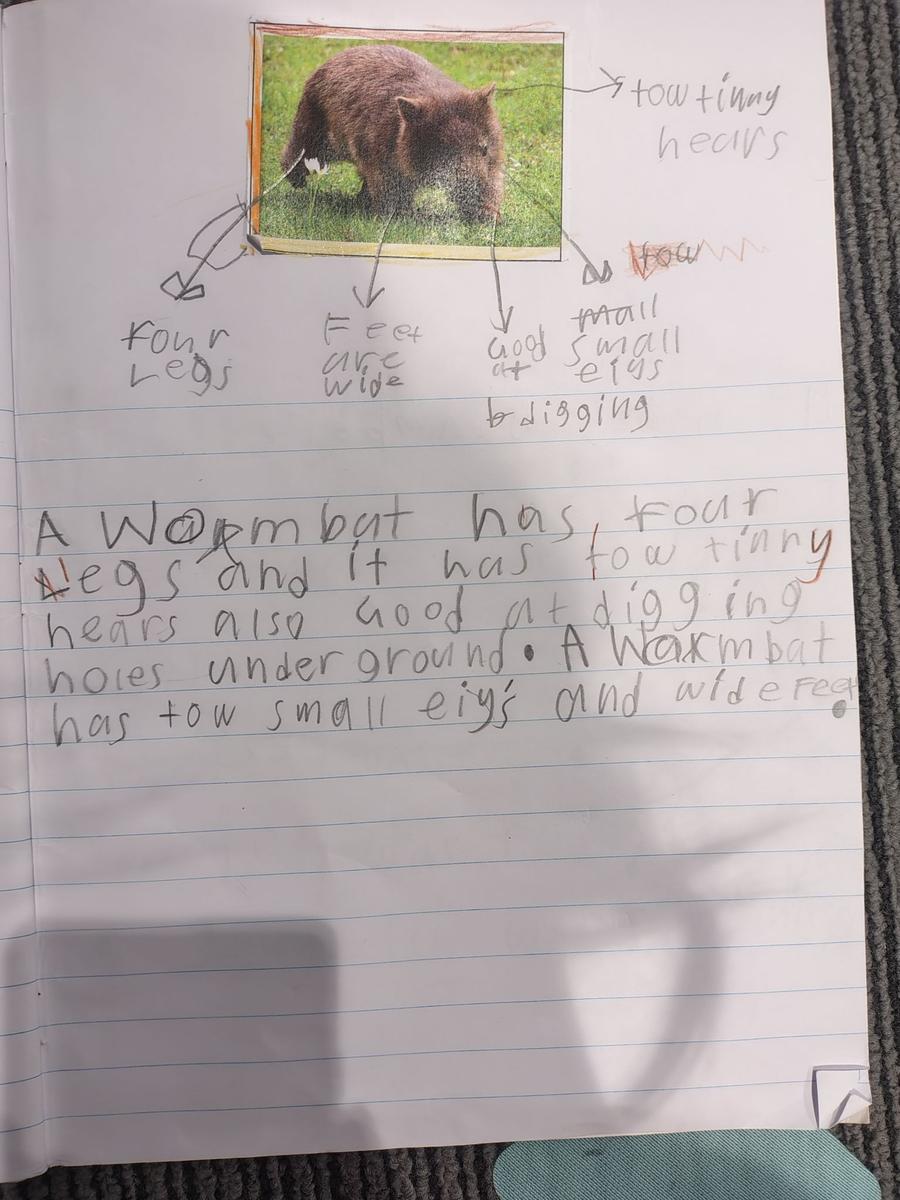 tow tinny
hears
tow
mall
small
eiys
Four
Legs
Feet
are
wide
Good
at
digging
A Warmbat has four
Legs and it has tow tinny
hears also Good at digging
holes underground. A Warmbat
has tow small eiy's and wide Feet.